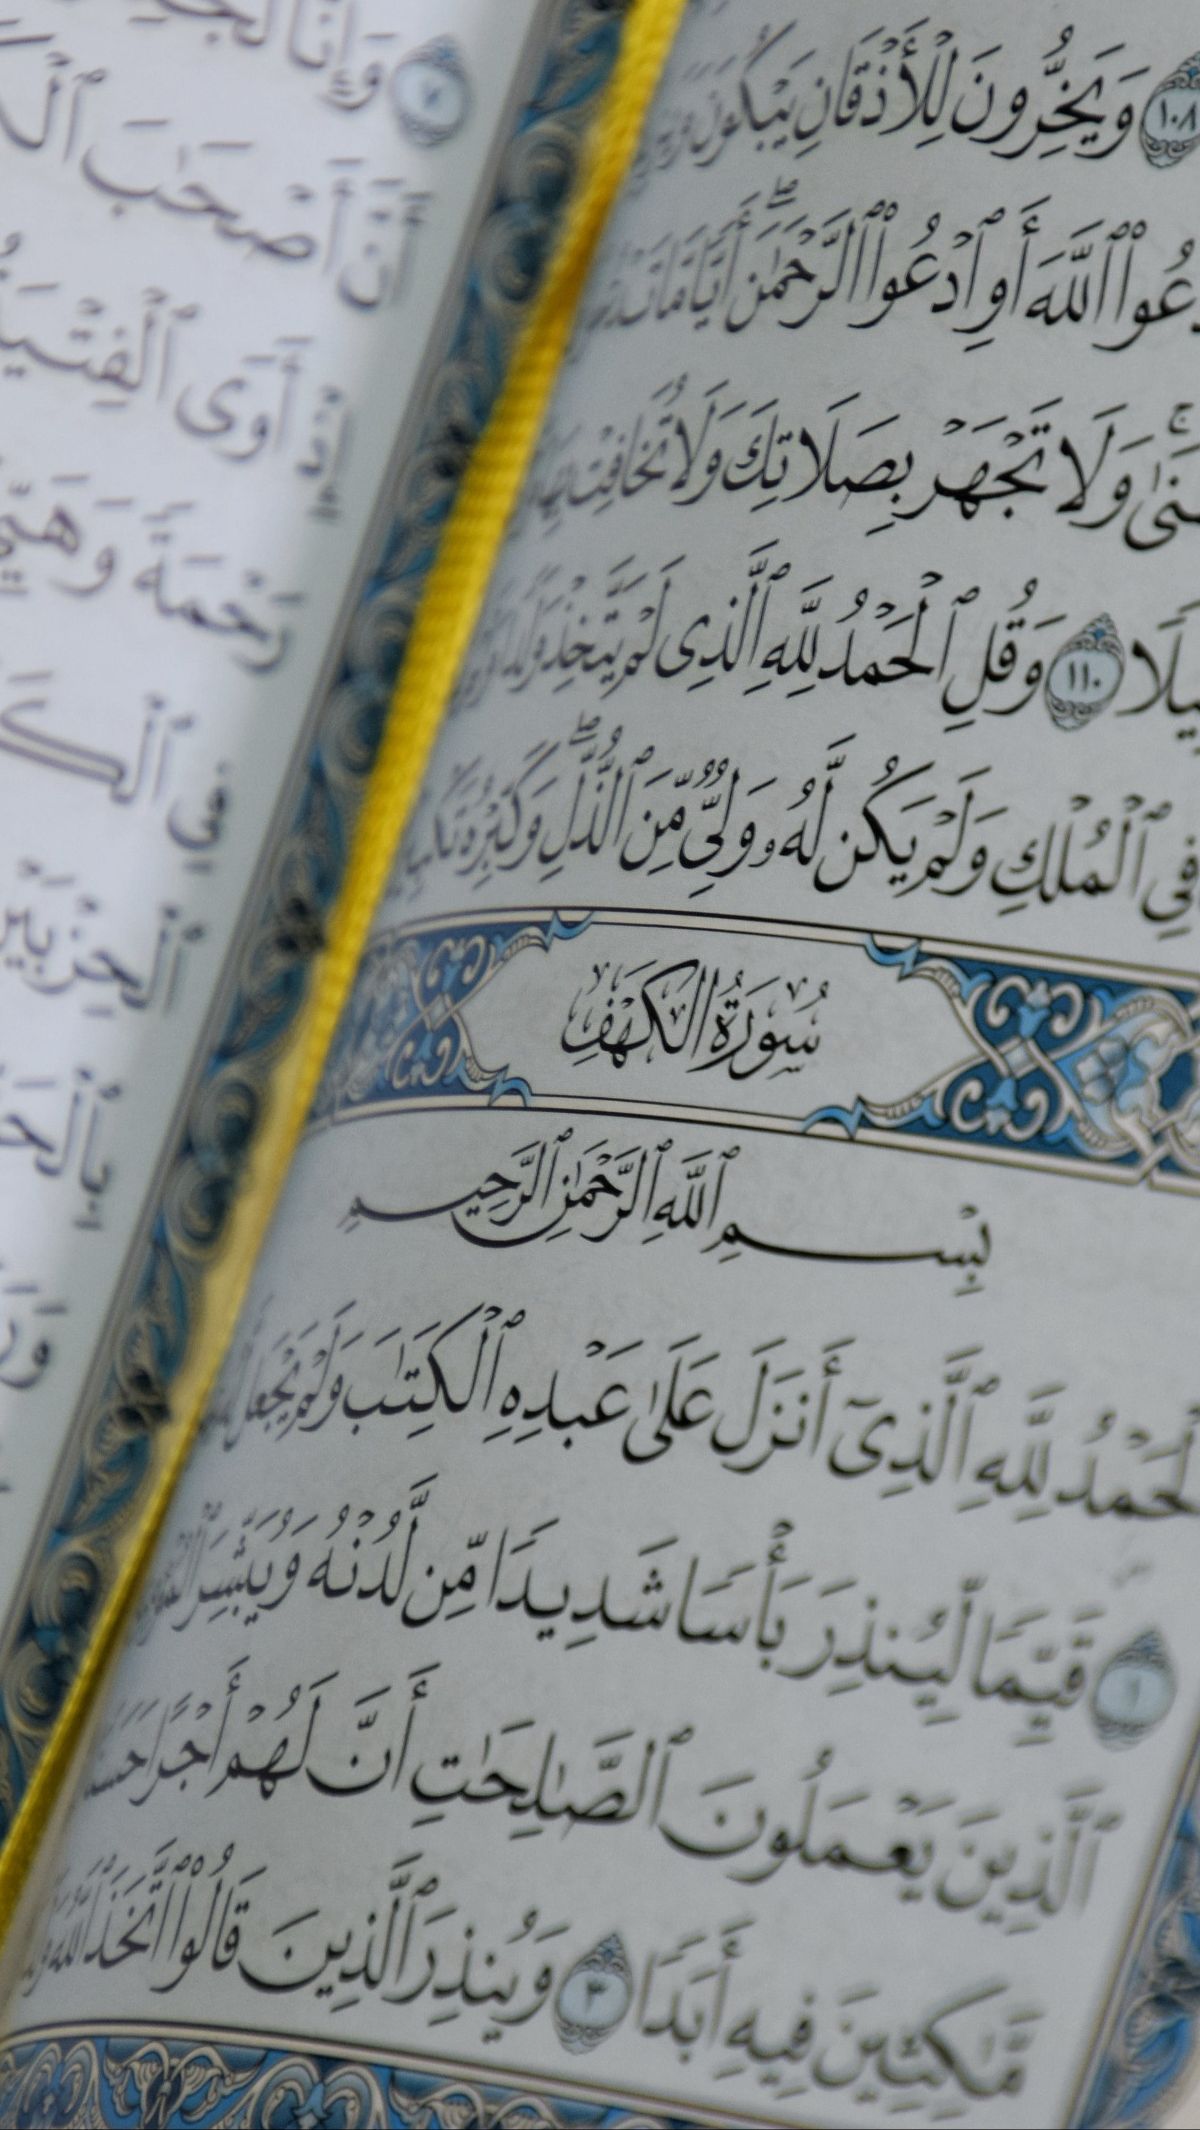 ١٠٨ وَيَخِرُّونَ لِلْأَذْقَانِ يَبْكُونَ
ٱدْعُوا۟ ٱللَّهَ أَوِ ٱدْعُوا۟ ٱلرَّحْمَٰنَ ۖ أَيًّا مَّا تَدْعُوا۟
وَلَا تَجْهَرْ بِصَلَاتِكَ وَلَا تُخَافِتْ بِهَا
١١٠ وَقُلِ ٱلْحَمْدُ لِلَّهِ ٱلَّذِى لَمْ يَتَّخِذْ وَلَدًا
فِى ٱلْمُلْكِ وَلَمْ يَكُن لَّهُۥ وَلِىٌّ مِّنَ ٱلذُّلِّ ۖ وَكَبِّرْهُ تَكْبِيرًا
سُورَةُ الكَهْفِ
بِسْمِ ٱللَّهِ ٱلرَّحْمَٰنِ ٱلرَّحِيمِ
ٱلْحَمْدُ لِلَّهِ ٱلَّذِىٓ أَنزَلَ عَلَىٰ عَبْدِهِ ٱلْكِتَٰبَ وَلَمْ يَجْعَل
١ قَيِّمًا لِّيُنذِرَ بَأْسًا شَدِيدًا مِّن لَّدُنْهُ وَيُبَشِّرَ
ٱلَّذِينَ يَعْمَلُونَ ٱلصَّٰلِحَٰتِ أَنَّ لَهُمْ أَجْرًا حَسَنًا
مَّٰكِثِينَ فِيهِ أَبَدًا ٣ وَيُنذِرَ ٱلَّذِينَ قَالُوا۟ ٱتَّخَذَ ٱللَّهُ
وَإِنَّا
أَنَّ أَصْحَٰبَ
أَوَى ٱلْفِتْيَةُ
رَحْمَةً وَهَيِّئْ
فِى
ٱلْحِزْبَيْنِ